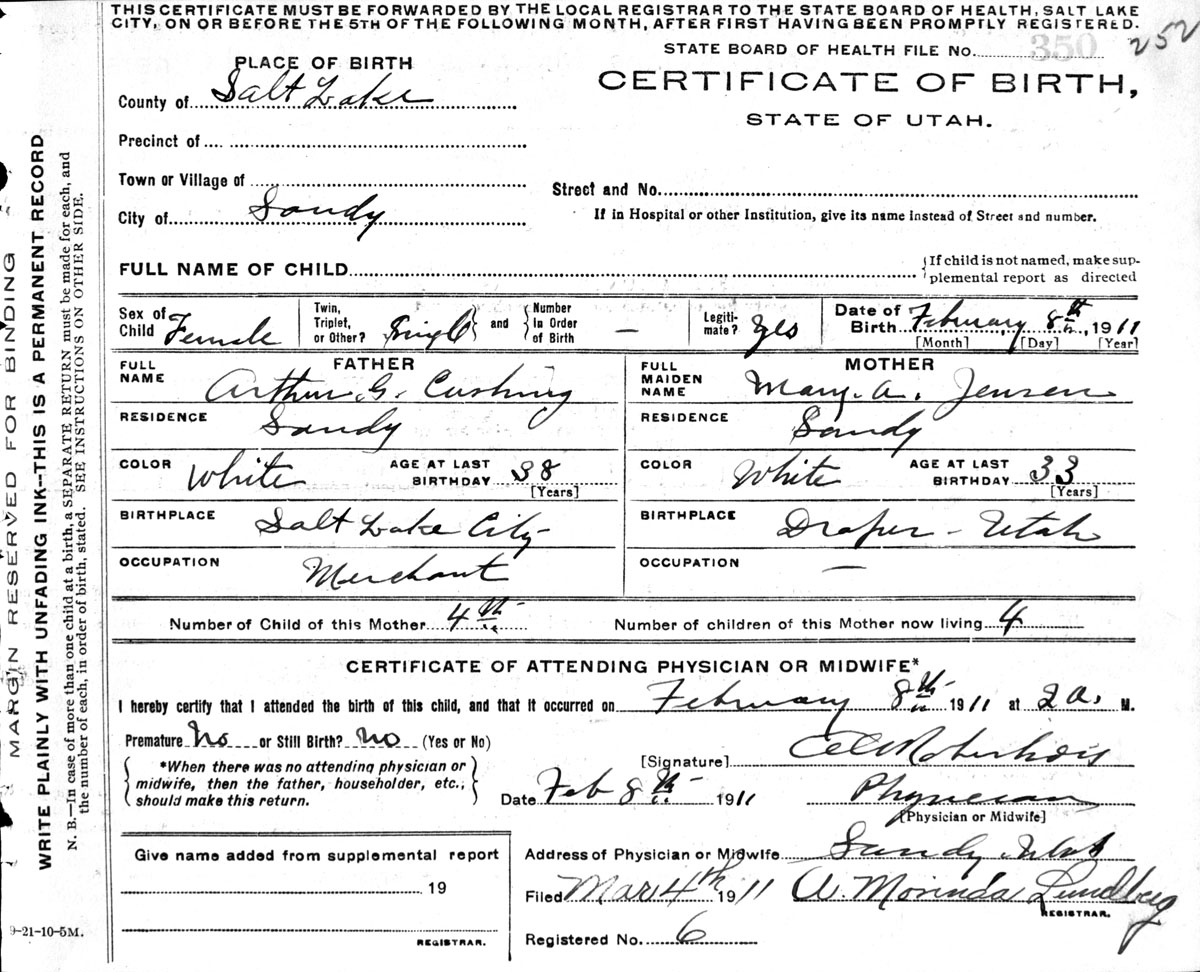 THIS CERTIFICATE MUST BE FORWARDED BY THE LOCAL REGISTRAR TO THE STATE BOARD OF HEALTH, SALT LAKE
CITY, ON OR BEFORE THE 5TH OF THE FOLLOWING MONTH, AFTER FIRST HAVING BEEN PROMPTLY REGISTERED.
STATE BOARD OF HEALTH FILE No. 350 252
PLACE OF BIRTH
CERTIFICATE OF BIRTH,
STATE OF UTAH.
County of Salt Lake
Precinct of
Town or Village of
Street and No.
City of Sandy
If in Hospital or other Institution, give its name instead of Street and number.
FULL NAME OF CHILD
{If child is not named, make sup-
plemental report as directed
Sex of Child Female
Twin, Triplet, or Other? Single } and { Number in Order of Birth —
Legiti-mate? Yes
Date of Birth February 8th, 1911
[Month] [Day] [Year]
FATHER
MOTHER
FULL NAME Arthur G. Cushing
FULL MAIDEN NAME Mary. A. Jensen
RESIDENCE Sandy
RESIDENCE Sandy
COLOR White AGE AT LAST BIRTHDAY 38 [Years]
COLOR White AGE AT LAST BIRTHDAY 33 [Years]
BIRTHPLACE Salt Lake City
BIRTHPLACE Draper - Utah
OCCUPATION Merchant
OCCUPATION —
Number of Child of this Mother 4th
Number of children of this Mother now living 4
CERTIFICATE OF ATTENDING PHYSICIAN OR MIDWIFE*
I hereby certify that I attended the birth of this child, and that it occurred on February 8th 1911 at 2 a. M.
Premature No or Still Birth? No (Yes or No)
*When there was no attending physician or
midwife, then the father, householder, etc.,
should make this return.
[Signature]
Date Feb 8th 1911 Physician
[Physician or Midwife]
Give name added from supplemental report
19
REGISTRAR.
Address of Physician or Midwife Sandy Utah
Filed Mar 4th 1911 A Morinda Lundberg
REGISTRAR.
Registered No. 6
9-21-10-5M.
MARGIN RESERVED FOR BINDING
WRITE PLAINLY WITH UNFADING INK--THIS IS A PERMANENT RECORD
N. B.—In case of more than one child at a birth, a SEPARATE RETURN must be made for each, and
the number of each, in order of birth, stated. SEE INSTRUCTIONS ON OTHER SIDE.